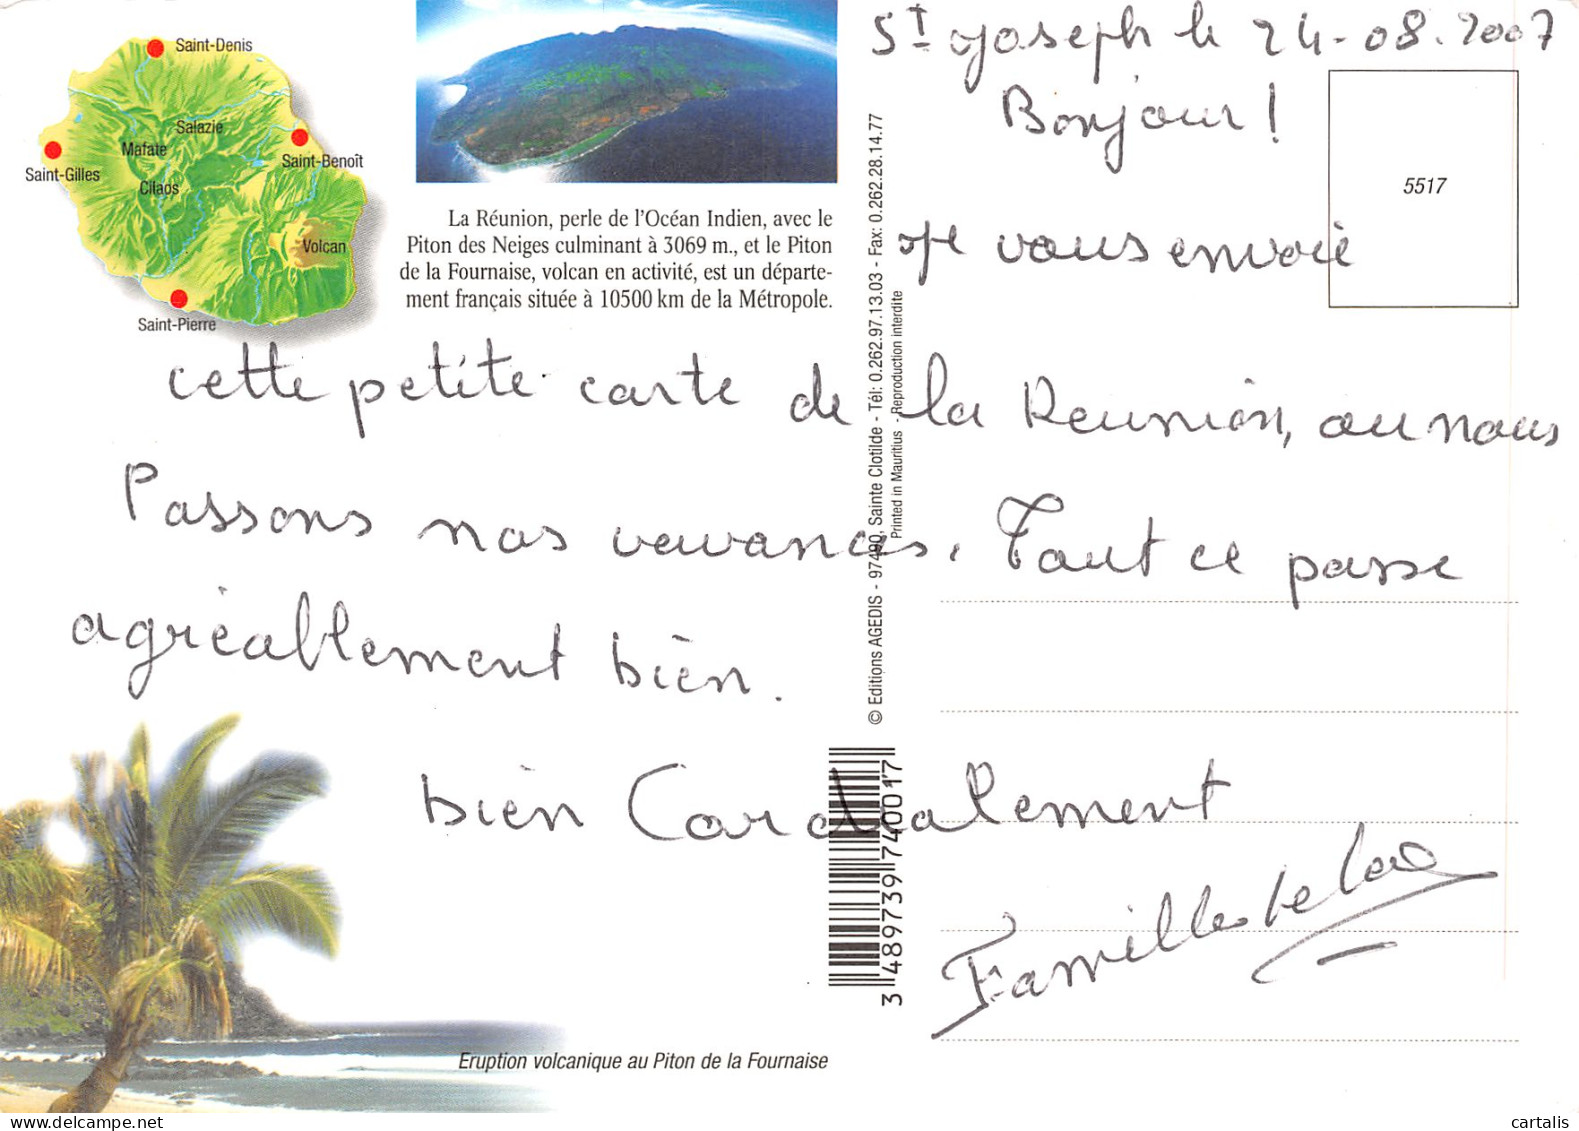 Saint-Denis
Salazie
Mafate
Saint-Benoît
Saint-Gilles
Cilaos
Volcan
Saint-Pierre
La Réunion, perle de l'Océan Indien, avec le
Piton des Neiges culminant à 3069 m., et le Piton
de la Fournaise, volcan en activité, est un départe-
ment français située à 10500 km de la Métropole.
St Joseph le 24-08.2007
Bonjour !
5517
Je vous envoie
cette petite carte de la Reunion, ou nous
Passons nos vavances. Tout ce passe
agréablement bien.
bien Cordialement
Famille
© Editions AGEDIS - 97490, Sainte Clotilde - Tél: 0.262.97.13.03 - Fax: 0.262.28.14.77
Printed in Mauritius - Reproduction interdite
3 489739 740017
Eruption volcanique au Piton de la Fournaise
delcampe.net
cartalis